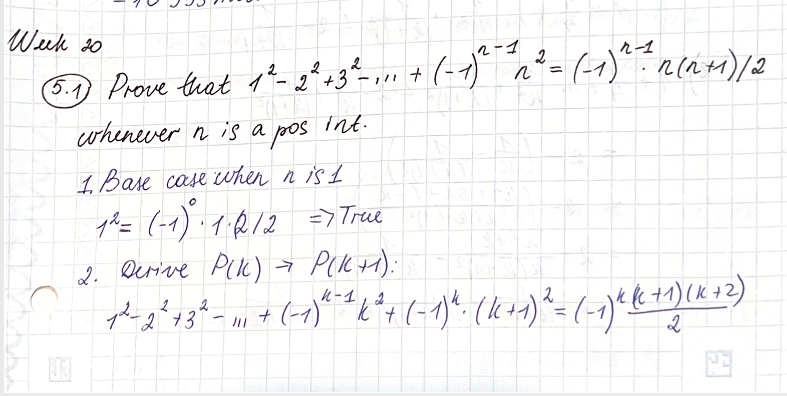 Week 20
5.1) Prove that 1² - 2² + 3² - ... + (-1)ⁿ⁻¹ n² = (-1)ⁿ⁻¹ · n(n+1)/2
whenever n is a pos int.
1. Base case when n is 1
1² = (-1)⁰ · 1 · 2/2 => True
2. Derive P(k) → P(k+1):
1² - 2² + 3² - ... + (-1)ᵏ⁻¹ k² + (-1)ᵏ · (k+1)² = (-1)ᵏ (k+1)(k+2)/2